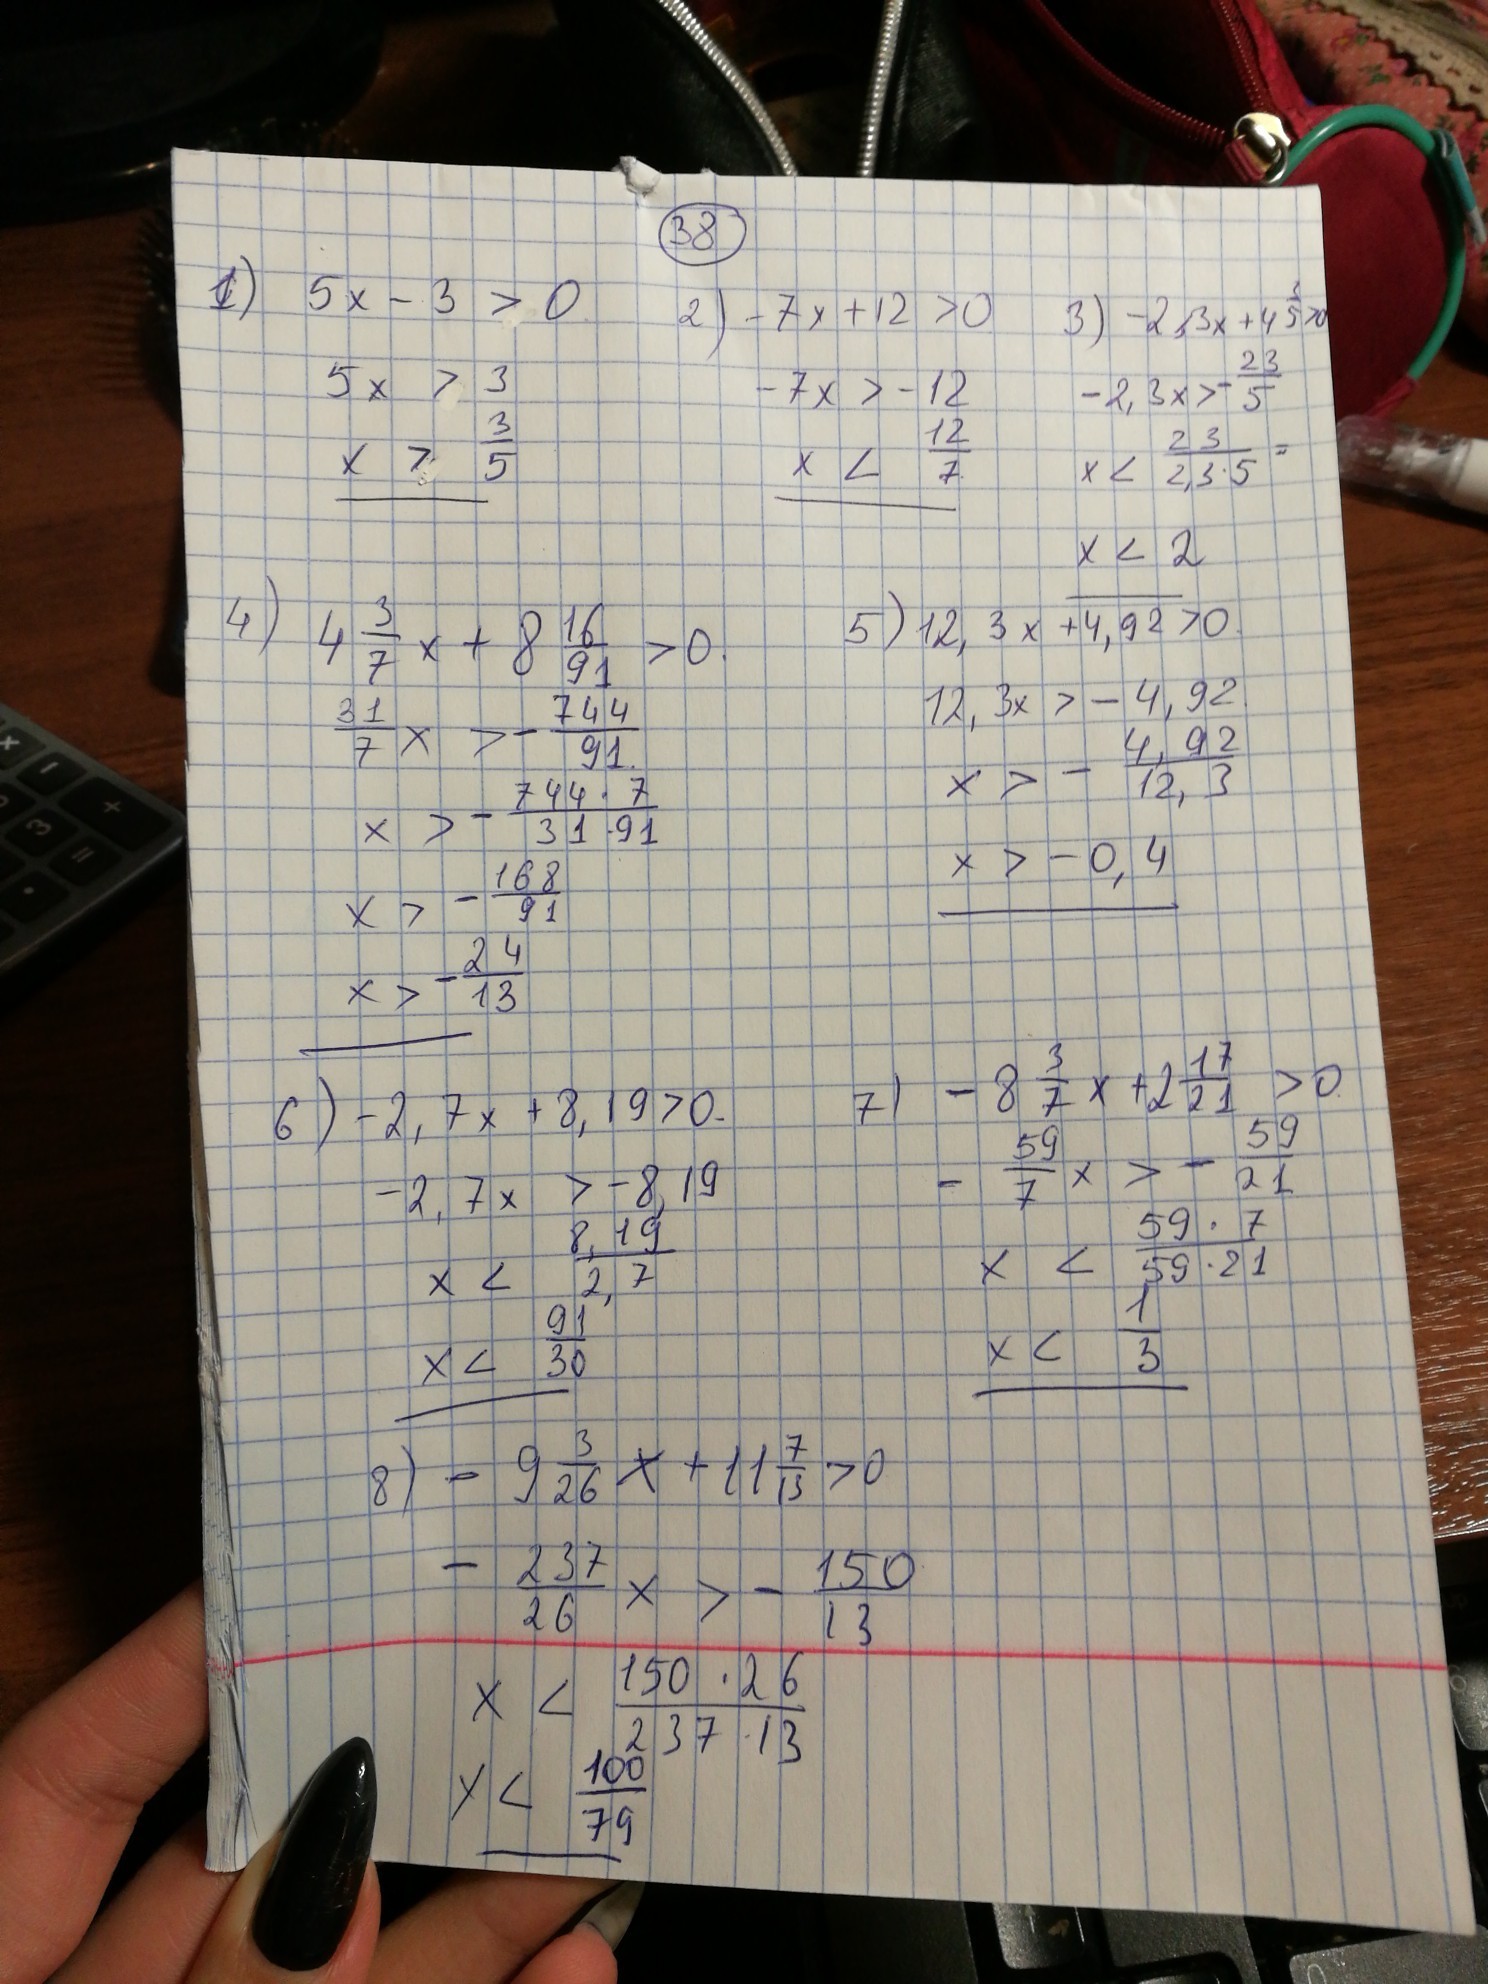 38
1) 5x - 3 > 0
5x > 3
x > 3/5
2) -7x + 12 > 0
-7x > -12
x < 12/7
3) -2,3x + 4 3/5 > 0
-2,3x > - 23/5
x < 23/(2,3·5) =
x < 2
4) 4 3/7 x + 8 16/91 > 0.
31/7 x > - 744/91.
x > - (744·7)/(31·91)
x > - 168/91
x > - 24/13
5) 12,3x + 4,92 > 0.
12,3x > -4,92.
x > - 4,92/12,3
x > -0,4
6) -2,7x + 8,19 > 0.
-2,7x > -8,19
x < 8,19/2,7
x < 91/30
7) -8 3/7 x + 2 17/21 > 0.
- 59/7 x > - 59/21
x < (59·7)/(59·21)
x < 1/3
8) -9 3/26 x + 11 7/13 > 0
- 237/26 x > - 150/13
x < (150·26)/(237·13)
x < 100/79